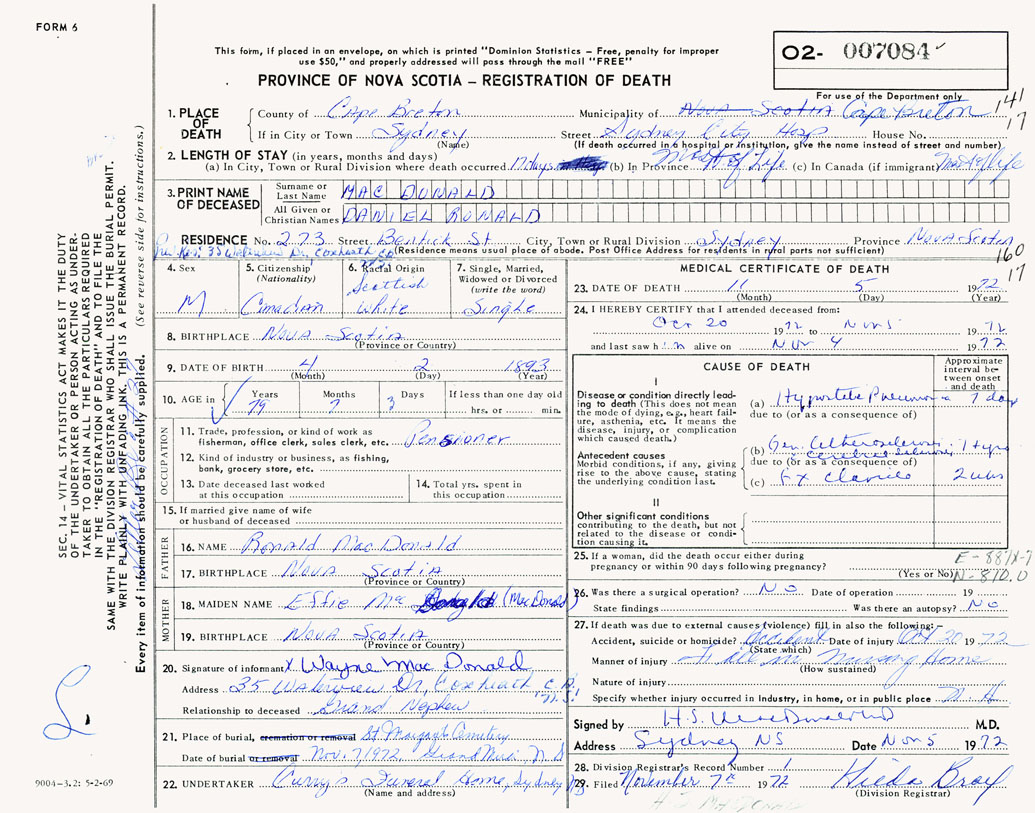 FORM 6
This form, if placed in an envelope, on which is printed "Dominion Statistics – Free, penalty for improper
use $50," and properly addressed will pass through the mail "FREE"
PROVINCE OF NOVA SCOTIA – REGISTRATION OF DEATH
O2- 007084
For use of the Department only
141
17
1. PLACE OF DEATH
County of Cape Breton Municipality of Nova Scotia Cape Breton
If in City or Town Sydney Street Sydney City Hosp House No.
(Name) (If death occurred in a hospital or institution, give the name instead of street and number)
2. LENGTH OF STAY (in years, months and days)
(a) In City, Town or Rural Division where death occurred 17 days (b) In Province Most of Life (c) In Canada (if immigrant) Most of life
3. PRINT NAME OF DECEASED
Surname or Last Name MAC DONALD
All Given or Christian Names DANIEL RONALD
RESIDENCE No. 273 Street Bentick St City, Town or Rural Division Sydney Province Nova-Scotia
35 Waterview Dr, Coxheath (Residence means usual place of abode. Post Office Address for residents in rural parts not sufficient)
160
17
4. Sex M
5. Citizenship (Nationality) Canadian
6. Racial Origin Scottish White
7. Single, Married, Widowed or Divorced (write the word) Single
8. BIRTHPLACE Nova Scotia
(Province or Country)
9. DATE OF BIRTH 4 2 1893
(Month) (Day) (Year)
10. AGE in Years 79 Months 7 Days 3 If less than one day old hrs. or min.
OCCUPATION
11. Trade, profession or kind of work as fisherman, office clerk, sales clerk, etc. Pensioner
12. Kind of industry or business, as fishing, bank, grocery store, etc.
13. Date deceased last worked at this occupation
14. Total yrs. spent in this occupation
15. If married give name of wife or husband of deceased
FATHER
16. NAME Ronald MacDonald
17. BIRTHPLACE Nova Scotia
(Province or Country)
MOTHER
18. MAIDEN NAME Effie Mac (MacDonald)
19. BIRTHPLACE Nova Scotia
(Province or Country)
20. Signature of informant X Wayne Mac Donald
Address 35 Waterview Dr, Coxheath C.B. N.S.
Relationship to deceased Grand Nephew
21. Place of burial, cremation or removal St Margaets Cemetery
Date of burial or removal Nov. 7, 1972. Grand Mira, N.S
22. UNDERTAKER Curry's Funeral Home, Sydney NS
(Name and address)
MEDICAL CERTIFICATE OF DEATH
23. DATE OF DEATH 11 5 1972
(Month) (Day) (Year)
24. I HEREBY CERTIFY that I attended deceased from:
Oct 20 1972 to Nov 5 1972
and last saw him alive on Nov 4 1972
CAUSE OF DEATH
Approximate interval between onset and death
I
Disease or condition directly leading to death (This does not mean the mode of dying, e.g., heart failure, asthenia, etc. It means the disease, injury, or complication which caused death.)
(a) Hypostatic Pneumonia 7 days
due to (or as a consequence of)
Antecedent causes
Morbid conditions, if any, giving rise to the above cause, stating the underlying condition last.
(b) Gen. Atherosclerosis
cerebral sclerosis
due to (or as a consequence of)
(c) Fx Clavicle 2 wks
II
Other significant conditions contributing to the death, but not related to the disease or condition causing it.
25. If a woman, did the death occur either during pregnancy or within 90 days following pregnancy?
(Yes or No)
N-810.0
26. Was there a surgical operation? NO Date of operation 19
State findings Was there an autopsy? No
27. If death was due to external causes (violence) fill in also the following:–
Accident, suicide or homicide? Accident Date of injury Oct 20 1972
(State which)
Manner of injury Fell in Nursing Home
(How sustained)
Nature of injury
Specify whether injury occurred in Industry, in home, or in public place N. H
Signed by H.S. MacDonald M.D.
Address Sydney NS Date Nov 5 1972
28. Division Registrar's Record Number 1
29. Filed November 7th 1972 Hilda Bray
(Division Registrar)
SEC. 14 – VITAL STATISTICS ACT MAKES IT THE DUTY
OF THE UNDERTAKER OR PERSON ACTING AS UNDER-
TAKER TO OBTAIN ALL THE PARTICULARS REQUIRED
IN THE "REGISTRATION OF DEATH" AND TO FILE THE
SAME WITH THE DIVISION REGISTRAR WHO SHALL ISSUE THE BURIAL PERMIT.
WRITE PLAINLY WITH UNFADING INK. THIS IS A PERMANENT RECORD.
Every item of information should be carefully supplied. (See reverse side for instructions.)
9004-3.2: 5-2-69